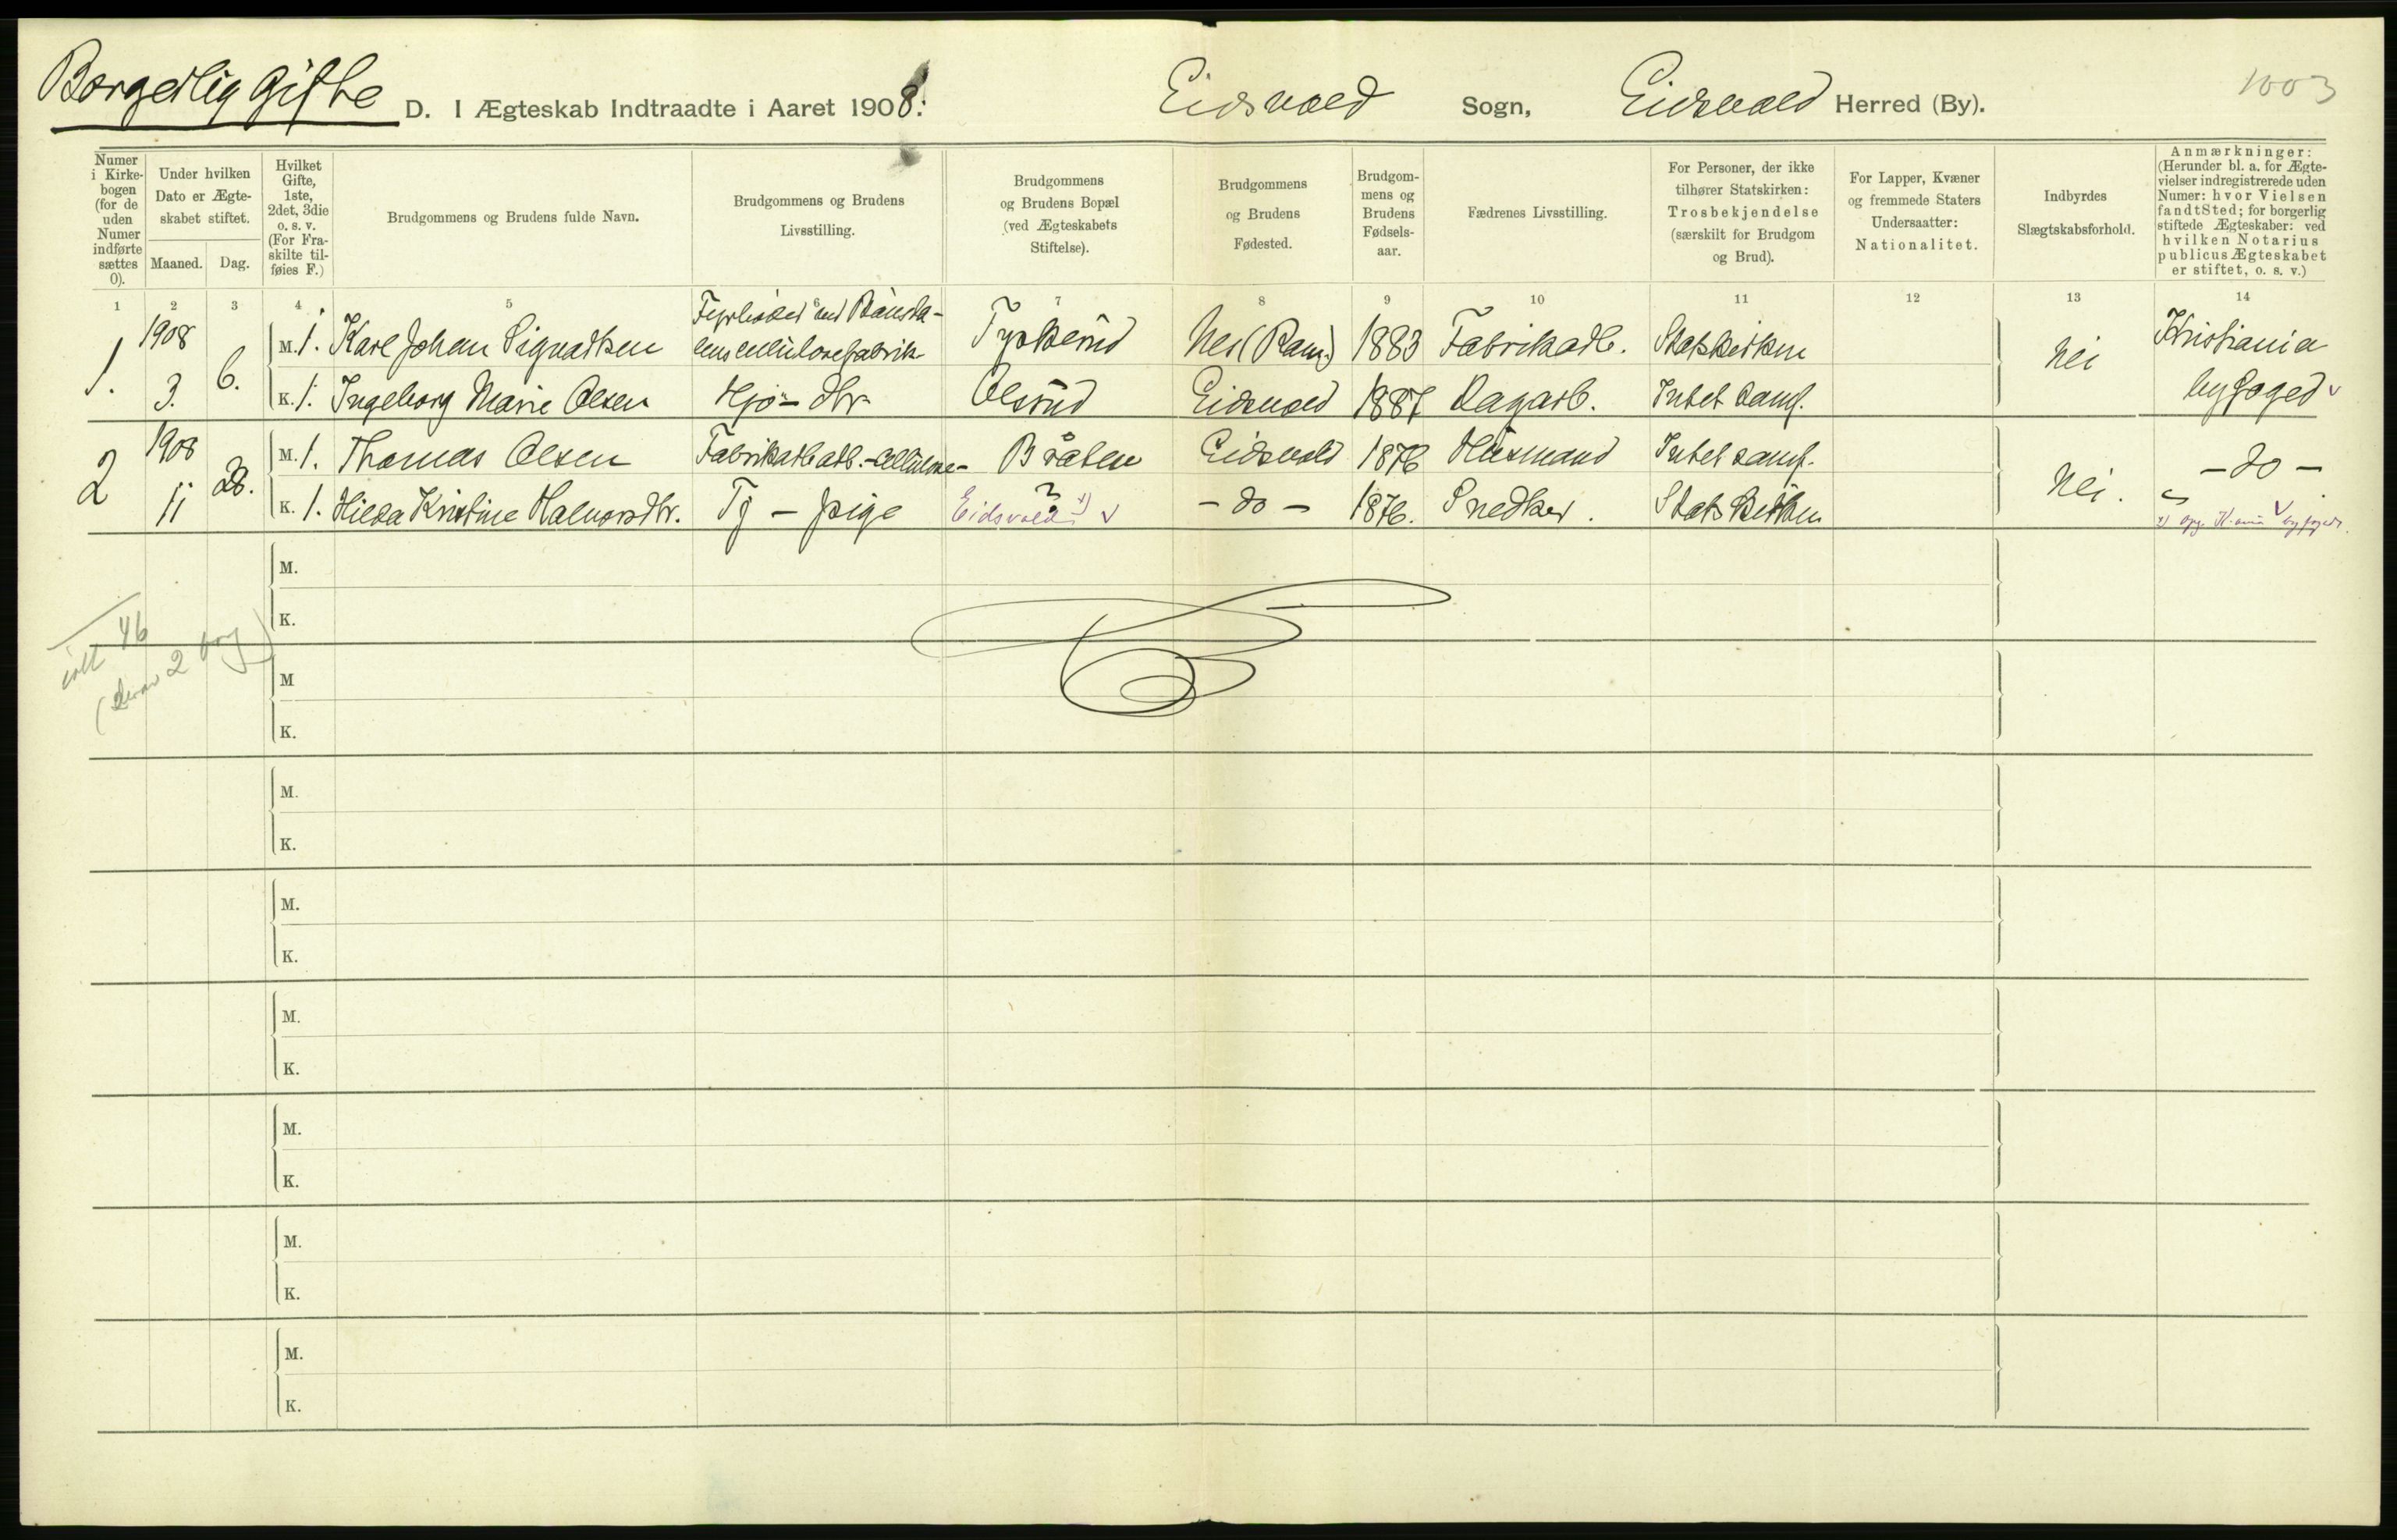 Borgerlig Gifte D. I Ægteskab Indtraadte i Aaret 1908: Eidsvold Sogn, Eidsvold Herred (By). 1003
Numer i Kirkebogen (for de uden Numer indførte sættes 0).
Under hvilken Dato er Ægteskabet stiftet.
Maaned. Dag.
Hvilket Gifte, 1ste, 2det, 3die o. s. v. (For Fraskilte tilføies F.)
Brudgommens og Brudens fulde Navn.
Brudgommens og Brudens Livsstilling.
Brudgommens og Brudens Bopæl (ved Ægteskabets Stiftelse).
Brudgommens og Brudens Fødested.
Brudgommens og Brudens Fødselsaar.
Fædrenes Livsstilling.
For Personer, der ikke tilhører Statskirken: Trosbekjendelse (særskilt for Brudgom og Brud).
For Lapper, Kvæner og fremmede Staters Undersaatter: Nationalitet.
Indbyrdes Slægtskabsforhold.
Anmærkninger: (Herunder bl. a. for Ægtevielser indregistrerede uden Numer: hvor Vielsen fandt Sted; for borgerlig stiftede Ægteskaber: ved hvilken Notarius publicus Ægteskabet er stiftet, o. s. v.)
1 2 3 4 5 6 7 8 9 10 11 12 13 14
1. 1908 3. 6. M. 1. Karl Johan Sigvartsen Fyrbøder ved Bönsdalens cellulosefabrik Nes (Rom.) 1883 Fabrikarb. Statskirken Nei Kristiania
K. 1. Ingeborg Marie Olsen Hjò - dtr Olsrud Eidsvold 1887 Dagarb. Intet samf. byfoged v
2 1908 11 28. M. 1. Thomas Olsen Fabrikarb. - cellulose - Bråten Eidsvold 1876 Husmand Intet samf. Nei. - do -
K. 1. Hilda Kristine Halvorsdtr. Tj - pige ? Eidsvold x) v - do - 1876. Snedker. Statskirken v
x) opg. K.ania byfoged.
M.
K.
ialt 46
(derav 2 borg)
M
K.
M.
K.
M.
K.
M.
K.
M.
K.
M.
K.
M.
K.